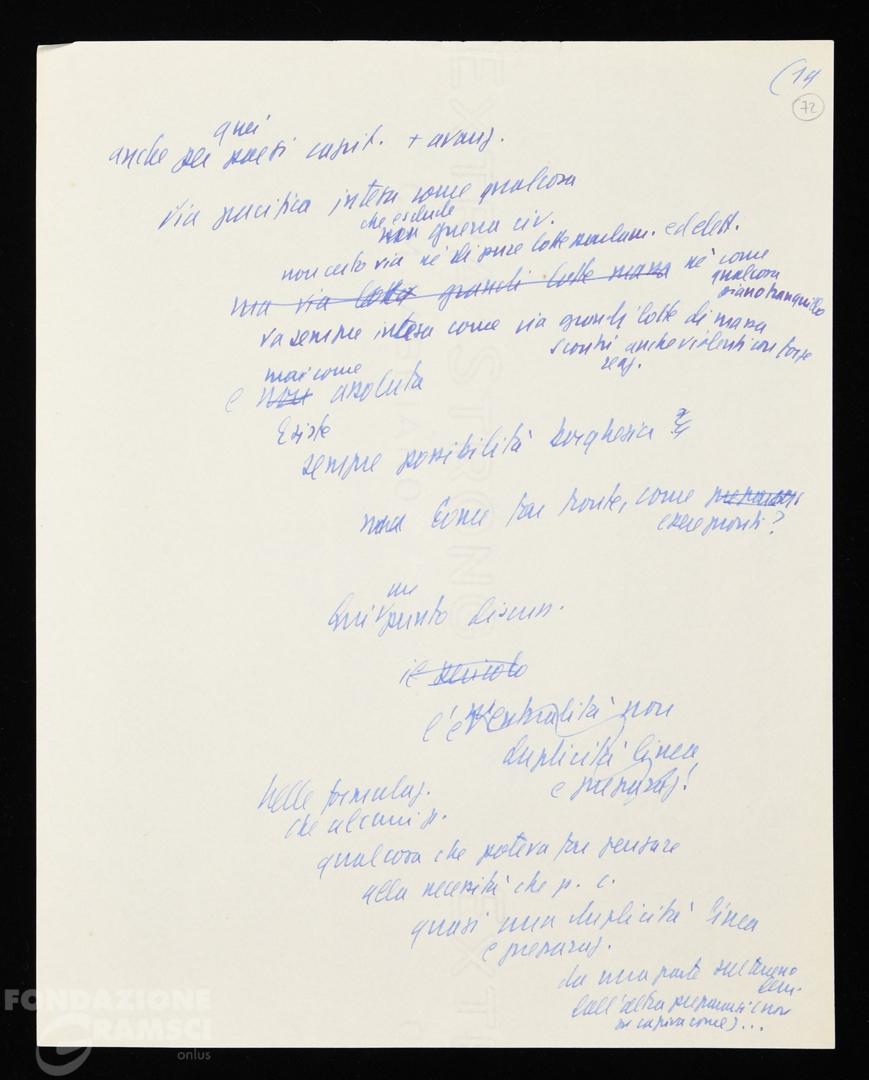 (14
72
quei
anche per paesi capit. + avanz.
via pacifica intesa come qualcosa
che esclude
non guerra civ.
non certo via né di pure lotte parlam. ed elett.
né come
qualcosa
piano tranquillo
ma via lotta grandi lotte massa
va sempre intesa come via grandi lotte di massa
scontri anche violenti con forze
reaz.
mai come
e non assoluta
Esiste
sempre possibilità borghesia
ma Come far fronte, come prepararsi
essere pronti?
un
Qui punto discuss.
il pericolo
l'eventualità non
duplicità linea
e preparaz!
Nelle formulaz.
che alcuni p.
qualcosa che poteva far pensare
alla necessità che p. c.
quasi una duplicità linea
e preparaz.
da una parte sul terreno
dem.
dall'altra prepararsi (non
si capiva come) ...
FONDAZIONE
GRAMSCI
onlus